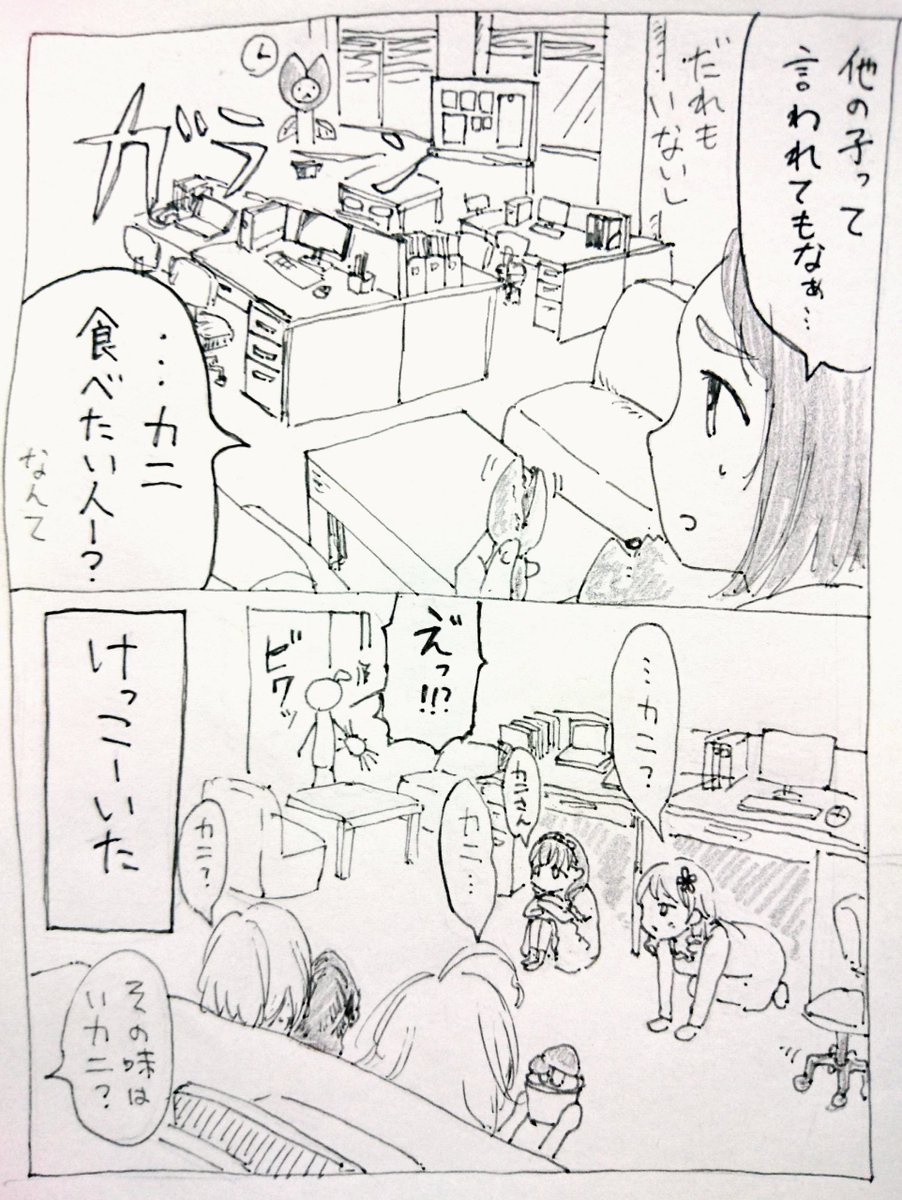 他の子って
言われてもなぁ…
だれも
いないし
ガラ
…カニ
食べたい人ー?
なんて
…カニ?
えっ!!?
ビクッ
カニさん
カニ…
カニ?
けっこーいた
その味は
いカニ?